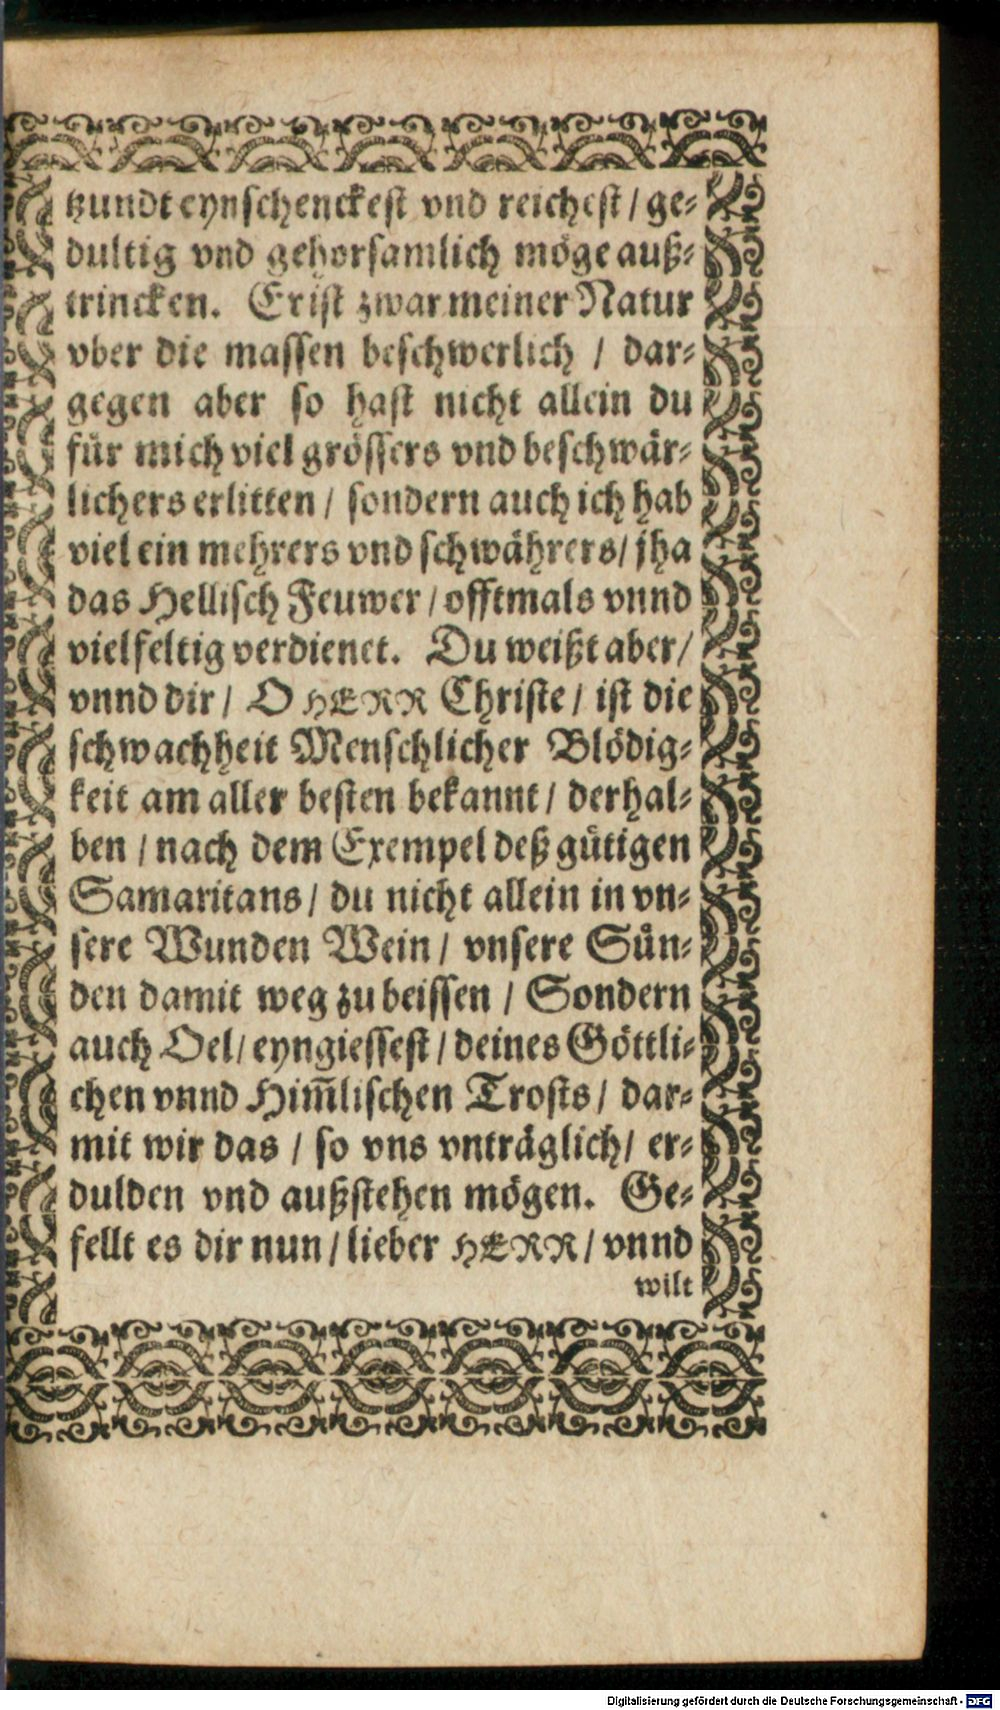 tzundt eynschenckest vnd reichest / ge-
dultig vnd gehorsamlich möge auß-
trincken. Er ist zwar meiner Natur
vber die massen beschwerlich / dar-
gegen aber so hast nicht allein du
für mich viel grössers vnd beschwär-
lichers erlitten / sondern auch ich hab
viel ein mehrers vnd schwährers / jha
das Hellisch Feuwer / offtmals vnnd
vielfeltig verdienet. Du weißt aber /
vnnd dir / O HERR Christe / ist die
schwachheit Menschlicher Blödig-
keit am aller besten bekannt / derhal-
ben / nach dem Exempel deß gütigen
Samaritans / du nicht allein in vn-
sere Wunden Wein / vnsere Sün-
den damit weg zu beissen / Sondern
auch Oel / eyngiessest / deines Göttli-
chen vnnd Him̃lischen Trosts / dar-
mit wir das / so vns vnträglich / er-
dulden vnd außstehen mögen. Ge-
fellt es dir nun / lieber HERR / vnnd
wilt
Digitalisierung gefördert durch die Deutsche Forschungsgemeinschaft - DFG